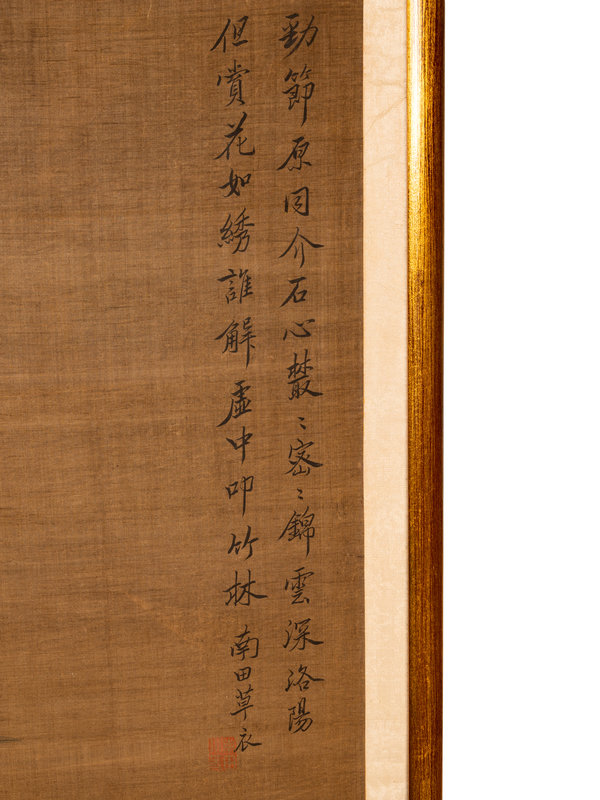 勁節原同介石心叢〻密〻錦雲深洛陽
但賞花如綉誰解虛中叩竹林
南田草衣